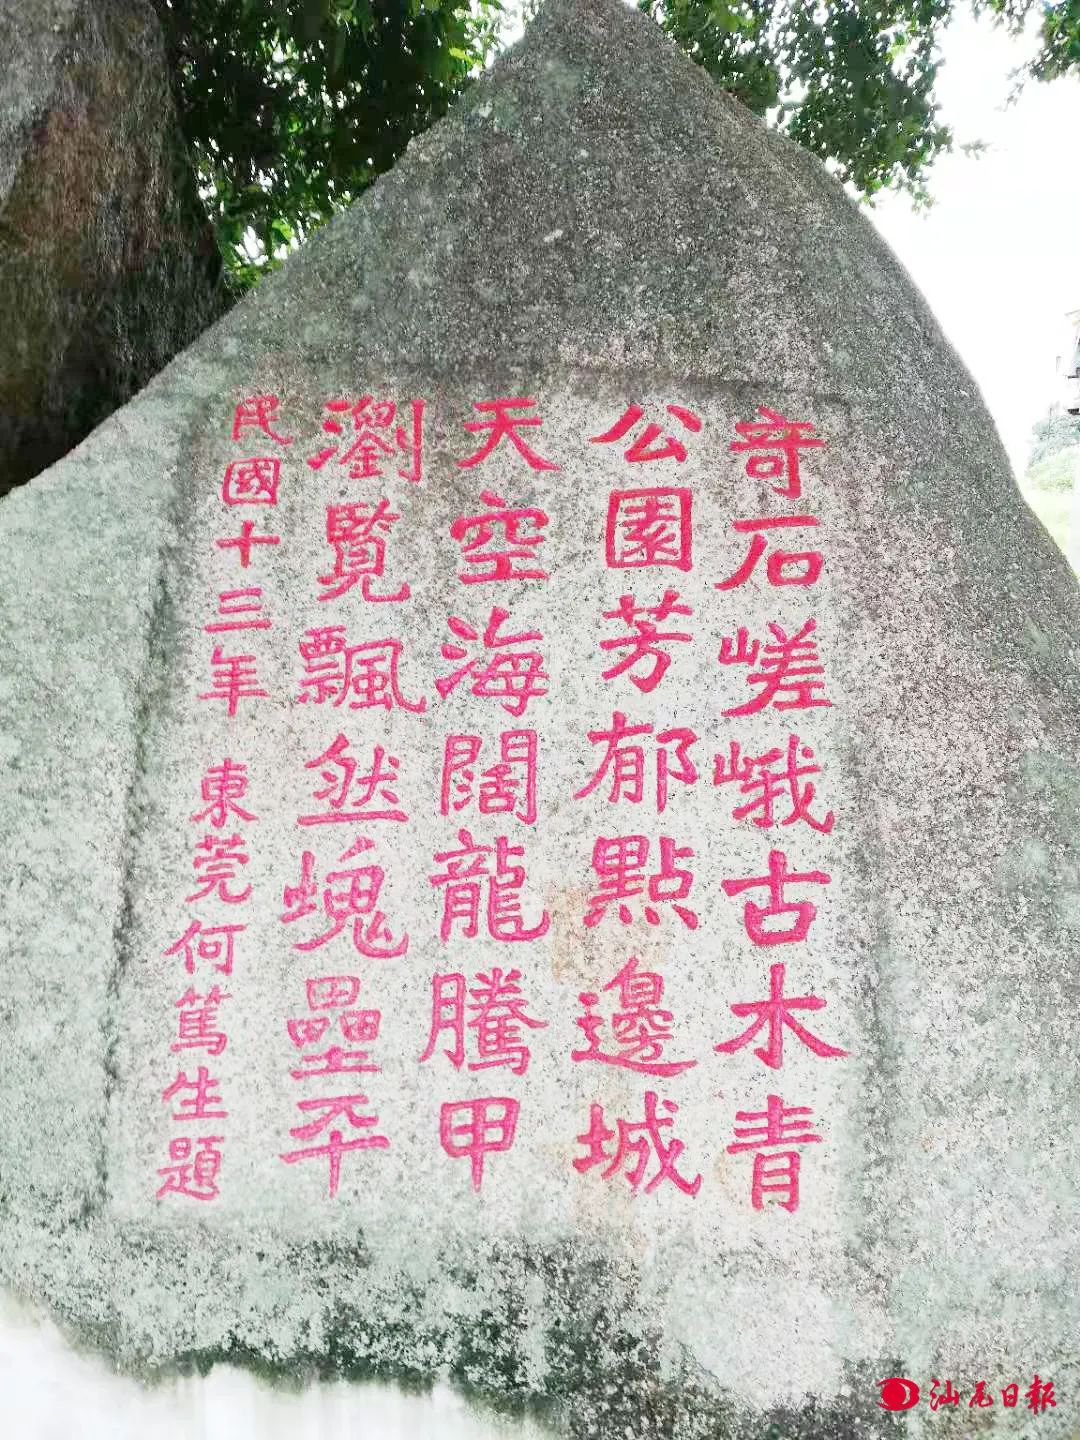 奇石嵯峨古木青
公園芳郁點邊城
天空海闊龍騰甲
瀏覽飄然塊壘平
民國十三年 東莞何篤生題
汕尾日報